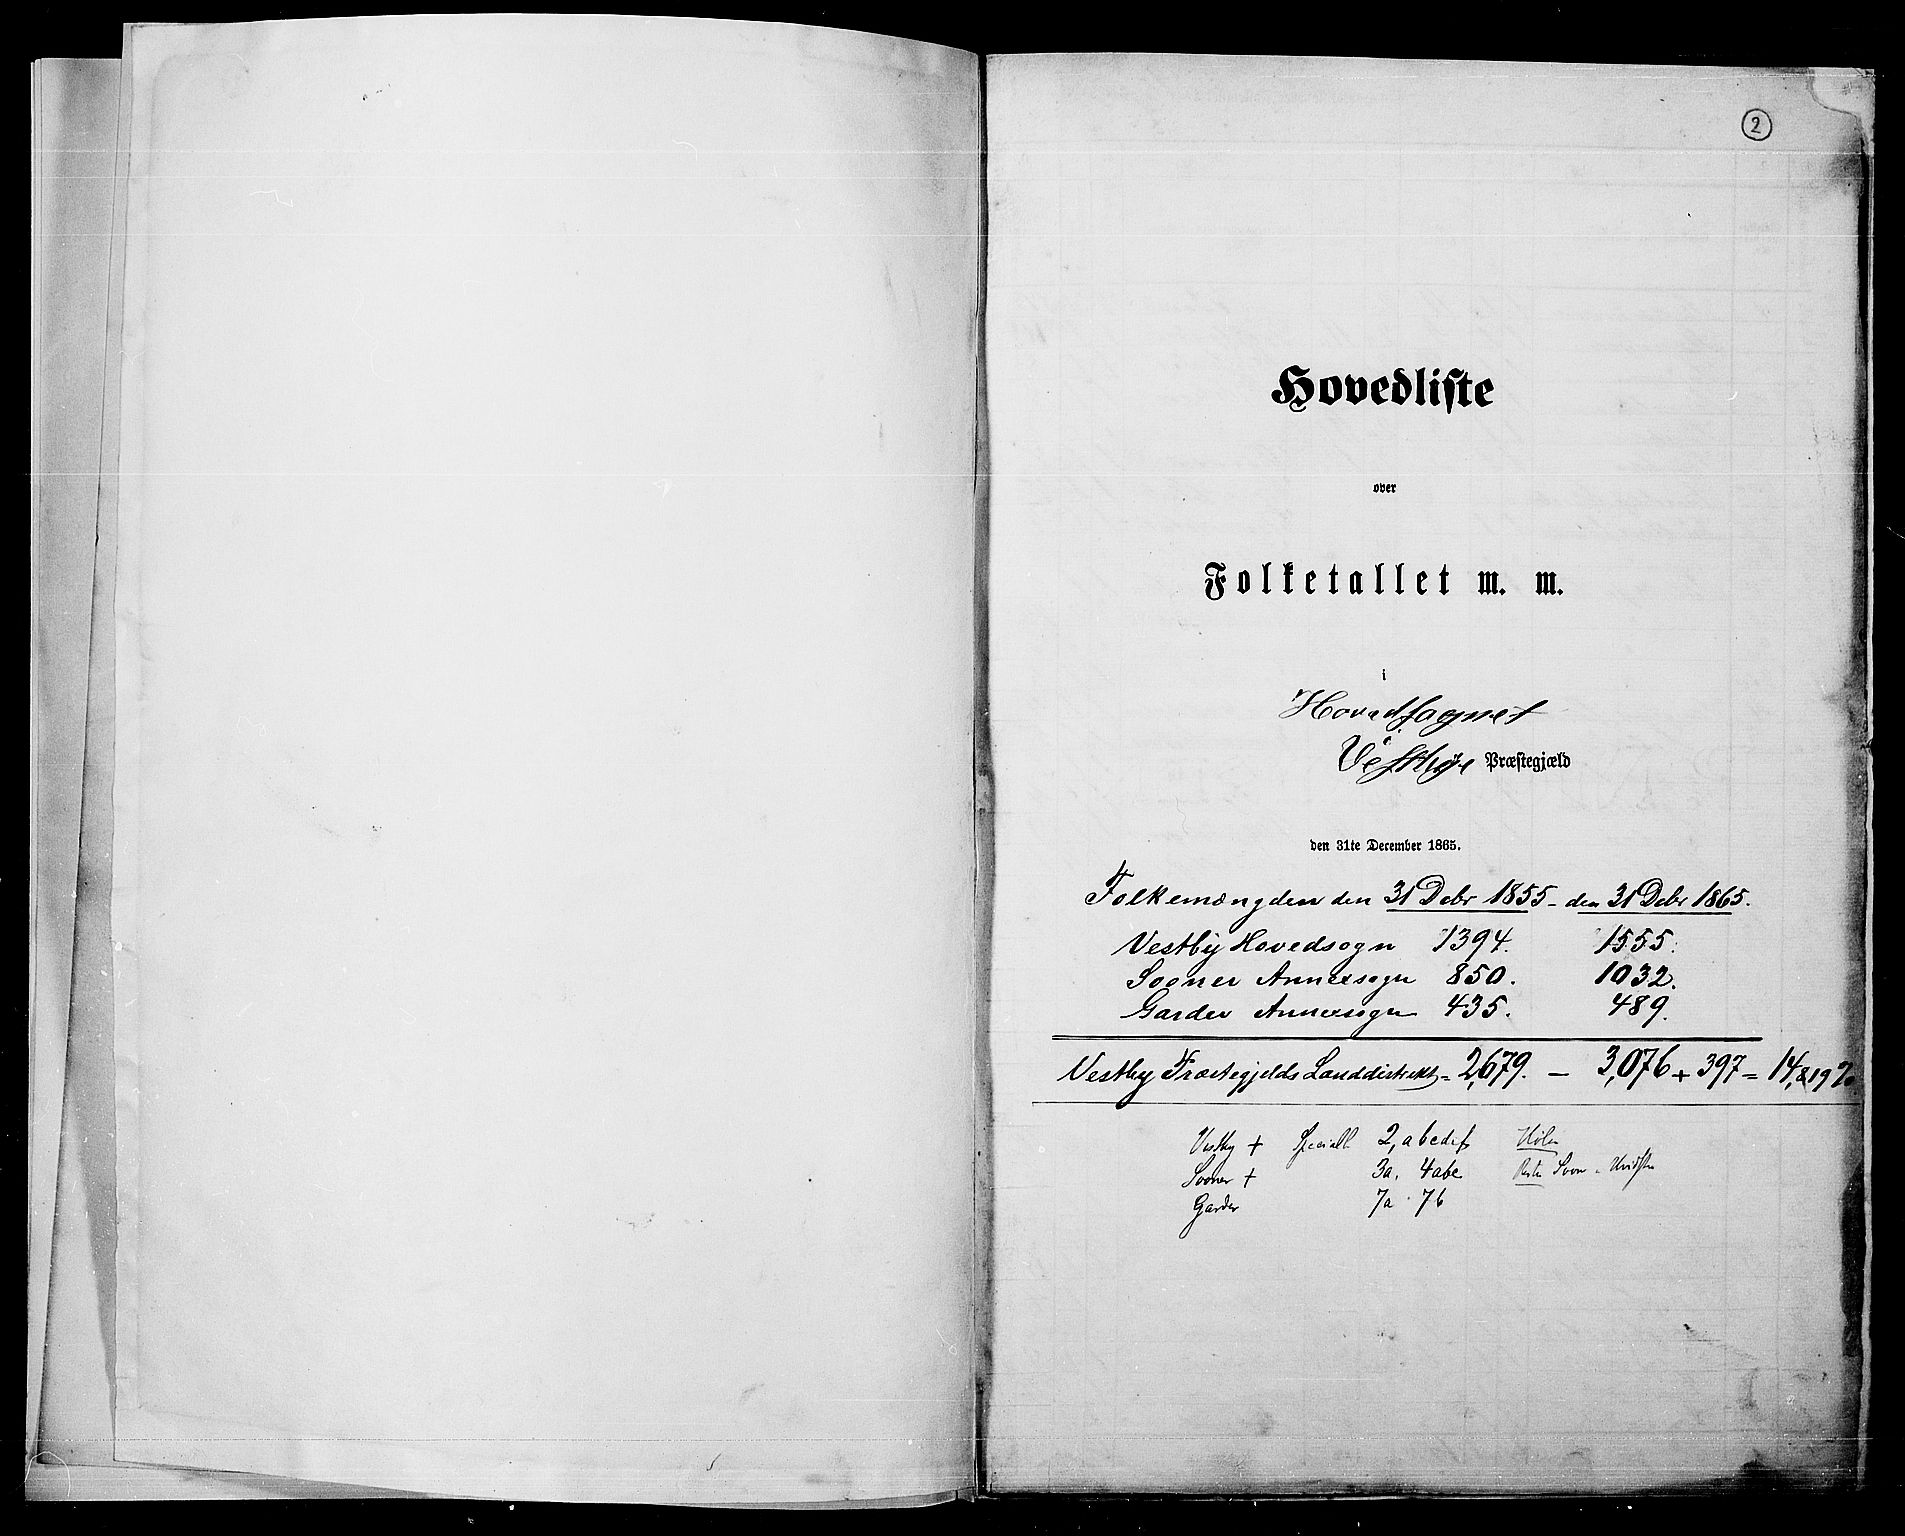 2
Hovedliste
over
Folketallet m. m.
i
Hovedsognet
Vestbye Præstegjæld
den 31te December 1865.
Folkemængden den 31 Decbr 1855 - den 31 Decbr 1865.
Vestby Hovedsogn 1394. 1555.
Sooner Annexsogn 850. 1032.
Garder Annexsogn 435. 489.
Vestby Præstegjelds Landdistrikt = 2,679. - 3,076 + 397 = 14,819 %
Vestby + Speciall 2, abcdef Hølen
Sooner + 3a. 4abc Soon
Garder 7a 7b